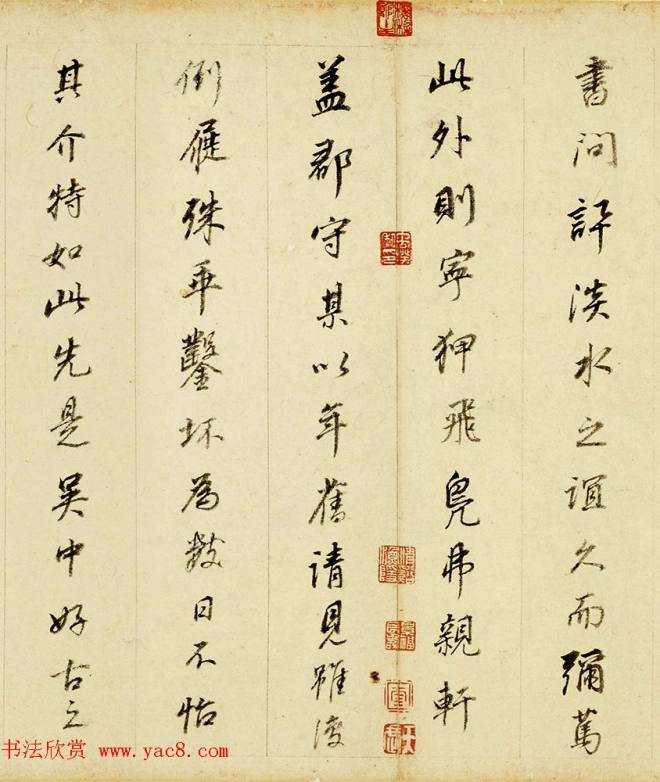 書問訊淡水之誼久而彌篤
此外則寧狎飛鳧弗親軒
盖郡守某以年舊請見雖復
倒屣殊乖鑿坏為數日不怡
其介特如此先是吳中好古之
书法欣赏 www.yac8.com